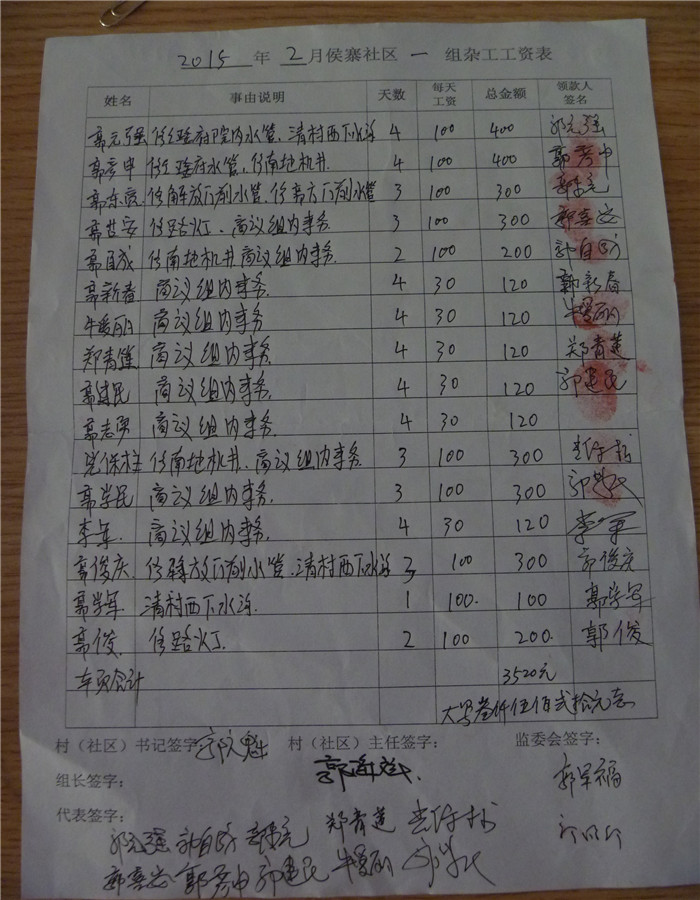 2015 年 2 月侯寨社区 一 组杂工工资表
姓名 事由说明 天数 每天工资 总金额 领款人签名
郭元强 修瑶府院内水管、清村西下水沟 4 100 400 郭元强
郭彦中 修瑶府水管、修南地机井 4 100 400 郭彦中
3 100 300
修路灯、商议组内事务 3 100 300
郭自成 修南地机井商议组内事务 2 100 200
郭新春 商议组内事务 4 30 120 郭新春
牛爱丽 商议组内事务 4 30 120 牛爱丽
郑青莲 商议组内事务 4 30 120 郑青莲
郭建民 商议组内事务 4 30 120 郭建民
郭志勇 商议组内事务 4 30 120
保柱 修南地机井、商议组内事务 3 100 300
郭学民 商议组内事务 3 100 300
李军 商议组内事务 4 30 120 李军
郭俊庆 修解放门前水管、清村西下水沟 3 100 300 郭俊庆
郭学军 清村西下水沟 1 100 100 郭学军
郭俊 修路灯 2 100 200 郭俊
本页合计 3520元
大写叁仟伍佰贰拾元 
村（社区）书记签字 村（社区）主任签字： 监委会签字：
组长签字：
代表签字：
郭元强 郑青莲
郭彦中 郭建民 牛爱丽